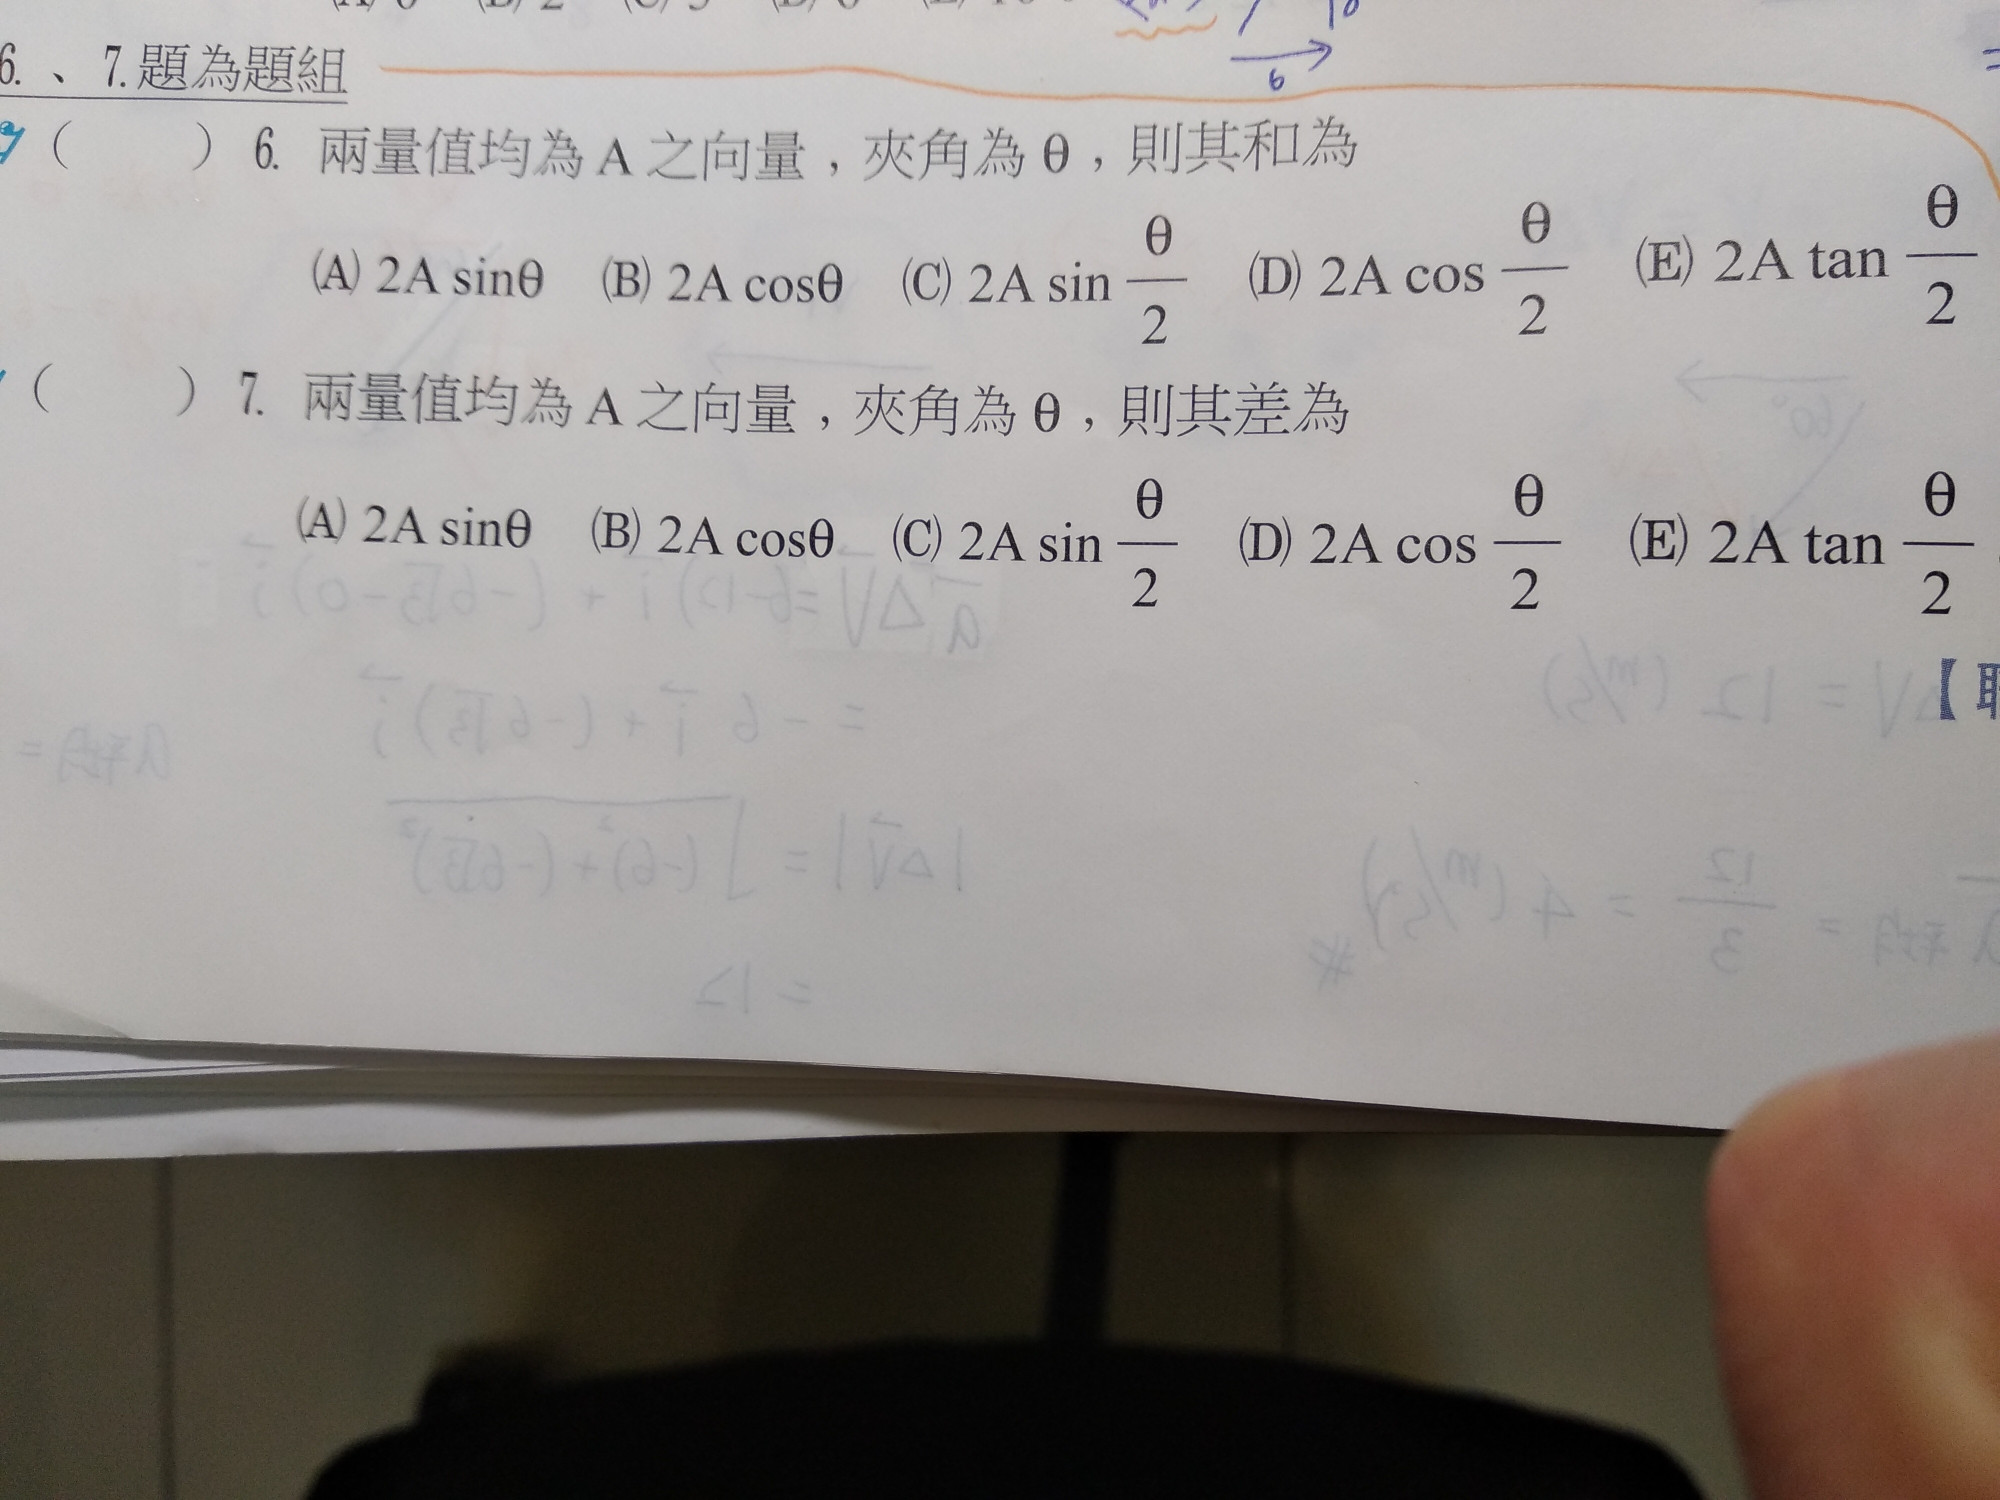 6.、7.題為題組
6
( ) 6. 兩量值均為 A 之向量，夾角為 θ，則其和為
(A) 2A sinθ (B) 2A cosθ (C) 2A sin θ/2 (D) 2A cos θ/2 (E) 2A tan θ/2
( ) 7. 兩量值均為 A 之向量，夾角為 θ，則其差為
(A) 2A sinθ (B) 2A cosθ (C) 2A sin θ/2 (D) 2A cos θ/2 (E) 2A tan θ/2
【